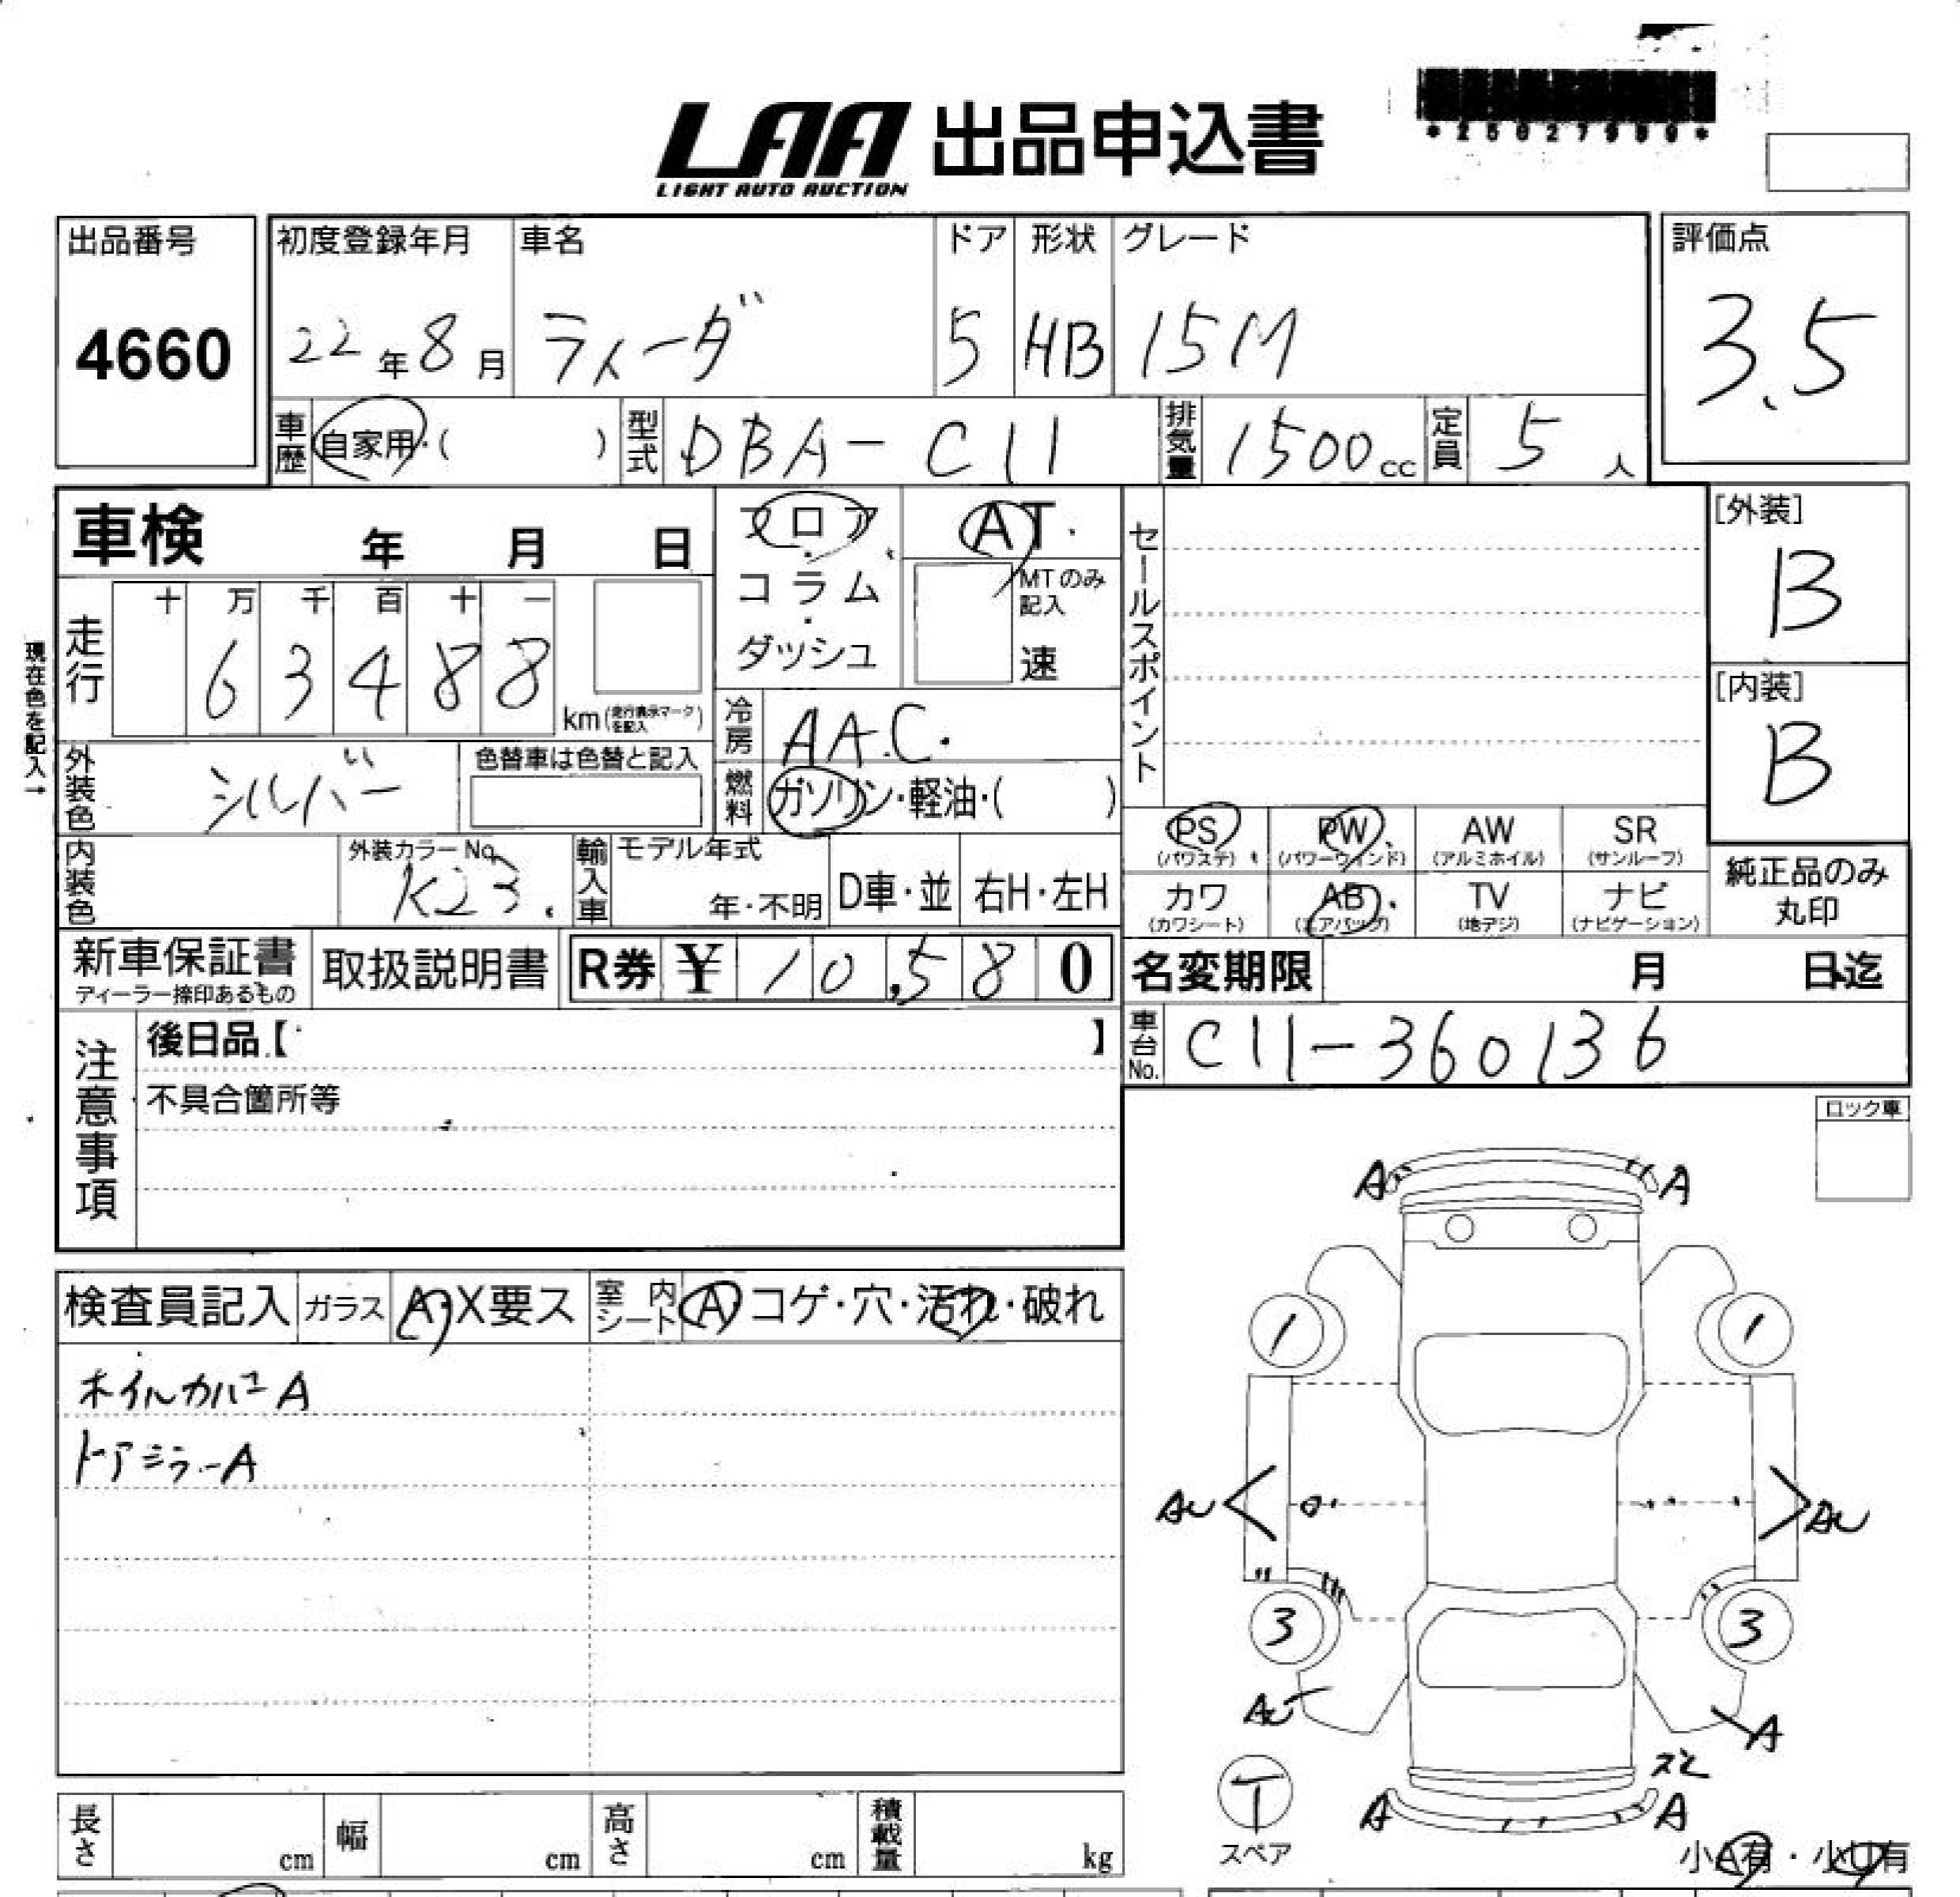 LAA 出品申込書
LIGHT AUTO AUCTION
出品番号
4660
初度登録年月 車名 ドア 形状 グレード
22年8月 ティーダ 5 HB 15M
評価点
3.5
車歴 自家用・( ) 型式 DBA-C11 排気量 1500cc 定員 5人
車検 年 月 日
フロア・
コラム・
ダッシュ
AT・
MTのみ記入
速
セールスポイント
[外装]
B
[内装]
B
現在色を記入→
走行 十 万 千 百 十 一
6 3 4 8 8 km (走行表示マークを記入)
冷房 AAC.
燃料 ガソリン・軽油・( )
外装色 シルバー 色替車は色替と記入
内装色 外装カラーNo. K23. 輸入車 モデル年式 年・不明 D車・並 右H・左H
PS (パワステ) PW (パワーウインド) AW (アルミホイル) SR (サンルーフ)
カワ (カワシート) AB (エアバッグ) TV (地デジ) ナビ (ナビゲーション)
純正品のみ
丸印
新車保証書 ディーラー捺印あるもの 取扱説明書 R券 ¥ 10,580
名変期限 月 日迄
車台No. C11-360136
注意事項
後日品【 】
不具合箇所等
ロック車
検査員記入 ガラス A・X要ス 室内シート A コゲ・穴・汚れ・破れ
ホイルカバーA
ドアミラーA
A A
1 1
AU AU
3 3
AU A
スレ
A A
T
スペア
小A有・小U有
長さ cm 幅 cm 高さ cm 積載量 kg